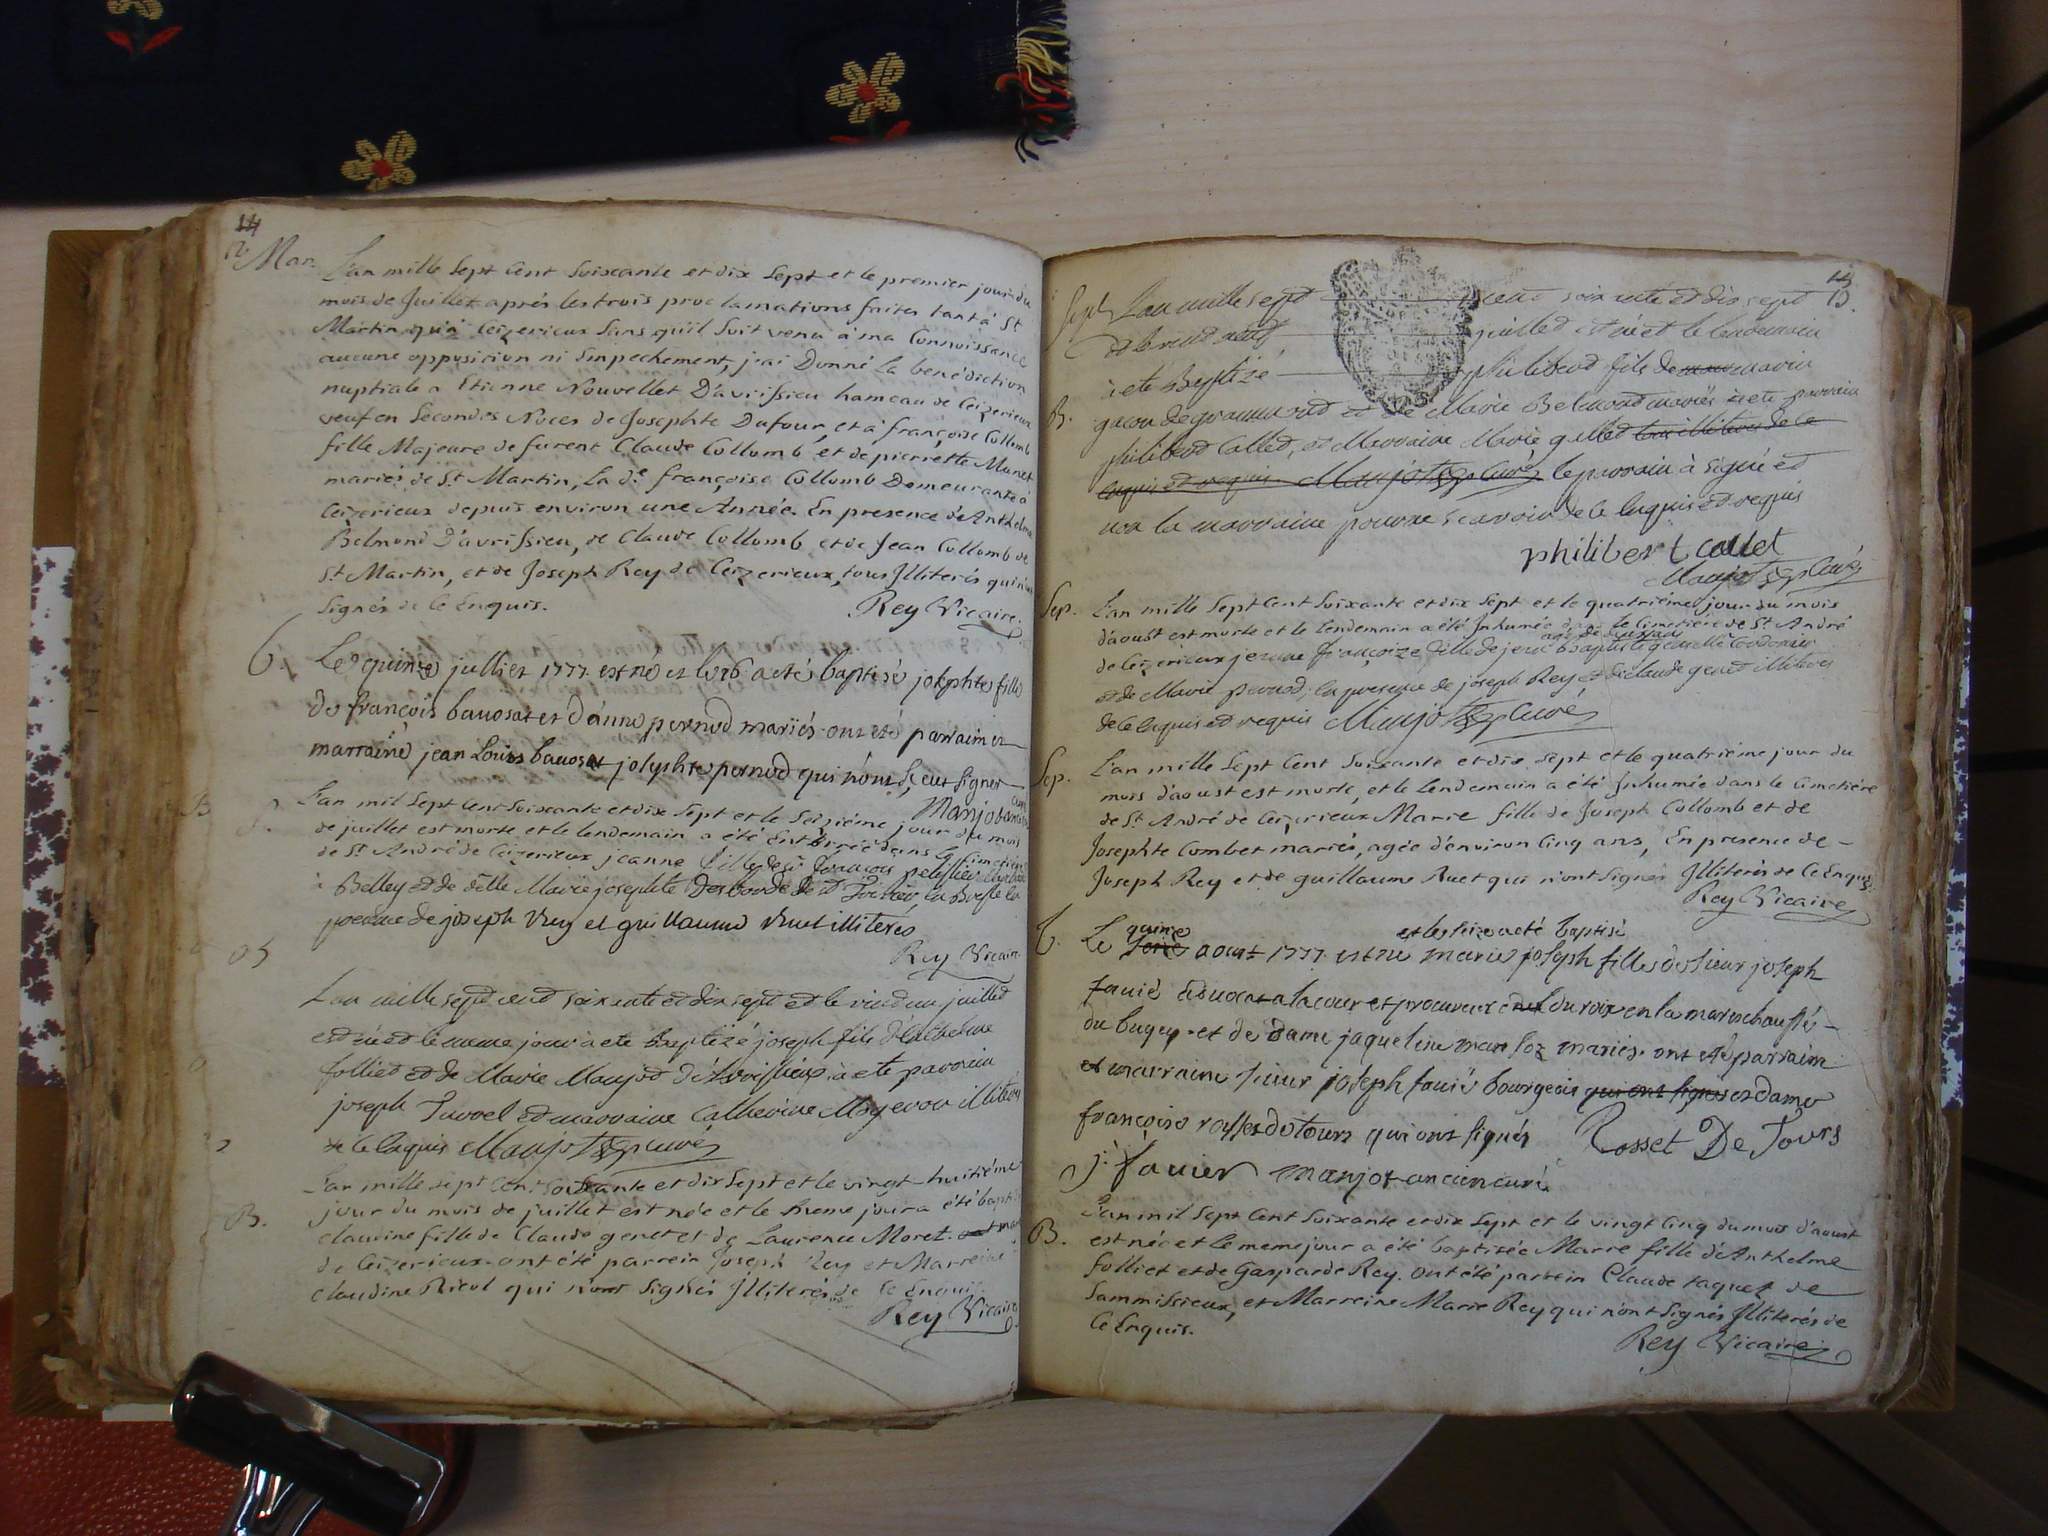 14
Mar. L'an mille Sept Cent Soixante et dix Sept et le premier jour du
mois de Juillet aprés les trois proclamations faites tant à St
Martin qu'a Ceizerieux Sans qu'il Soit venu à ma Connoissance
aucune opposition ni Empechement, j'ai Donné la benédiction
nuptiale a Etienne Nouvellet D'avrissieu hameau de Ceizerieux
veuf en Secondes Noces de Josephte Dufour, et à françoise Collomb
fille Majeure de furent Claude Collomb et de pierrette Munet
mariés de St Martin, la de françoise Collomb Demeurante à
Ceizerieux depuis environ une Année. En presence d'Anthelme
Belmond D'avrissieu, de Claude Collomb et de Jean Collomb de
St Martin, et de Joseph Rey de Ceizerieux, tous Illiterés qui n'ont
Signés de le Enquis.
Rey Vicaire
b. Le quinze jullier 1777 est né et le 16 a été baptisé josephte fille
de françois bavosat et d'anne pernod mariés ont été parrain et
marraine jean Louis bavosat josephte pernod qui n'ont sceu signer
Manjot ancien curé
L'an mil Sept Cent Soixante et dix Sept et le Seizième jour du mois
de juillet est morte et le lendemain a été Enterrée dans le Cimetière
de St André de Ceizerieux jeanne fille de Sr françois
Belley et de delle Marie josephte
presence de joseph Rey et guillaume Ruet illiterés
Rey Vicaire
L'an mille sept cent soixante et dix sept et le vint un juillet
est né et le meme jour a ete Baptizé joseph fils d'Anthelme
folliet et de Marie Manjot d'Avrissieux a ete parrain
joseph Turrel et marraine Catherine illiterés
de le Enquis Manjot curé
L'an mille sept Cent Soixante et dix Sept et le vingt huitième
B. jour du mois de juillet est née et le meme jour a été bapti
claudine fille de Claude genet et de Laurence Moret
de Ceizerieux ont été parrein Joseph Rey et Marreine
claudine Rieul qui n'ont Signés Illiterés de le Enquis
Rey Vicaire
15
L'an mille sept cent soix ante et dix sept
et le vint neuf juillet est né et le lendemain
a ete Baptizé philibert fils de
B. de Marie Belmond mariés a ete parrain
philibert Callet, et Marraine Marie
Manjot curé le parrain à signé et
non la marraine pour ne scavoir de le Enquis et requis
philibert callet
Manjot curé
Sep. L'an mille Sept Cent Soixante et dix Sept et le quatriéme jour du mois
d'aoust est morte et le lendemain a été Inhumée dans le Cimetière de St André
de Ceizerieux jeanne françoize fille de jean baptiste
et de Marie pernod, en presence de joseph Rey et de claude genet illiterés
de le Enquis et requis Manjot curé
Sep. L'an mille Sept Cent Soixante et dix Sept et le quatriéme jour du
mois d'aoust est morte, et le lendemain a été Inhumée dans le Cimetiére
de St André de Ceizerieux Marie fille de Joseph Collomb et de
Josephte Combet mariés, agée d'environ Cinq ans, En presence de
Joseph Rey et de guillaume Ruet qui n'ont Signés Illiterés de le Enquis
Rey Vicaire
quinze et le seize a été baptisé
b. Le aoust 1777 est né marie joseph fille de sieur joseph
favié advocat a la cour et procureur du roix en la marechaussée
du bugey et de dame jaqueline mariés ont été parrain
et marraine sieur joseph favié bourgeois qui ont signés et dame
françoise rosset de tours qui ont signés Rosset De Tours
j. favier manjot ancien curé
L'an mil Sept Cent Soixante et dix Sept et le vingt Cinq du mois d'aoust
B. est née et le meme jour a été baptisée Marie fille d'Anthelme
folliet et de Gasparde Rey. ont été parrein Claude raquet de
Sammissieux, et Marreine Marie Rey qui n'ont Signés Illiterés de
le Enquis.
Rey Vicaire